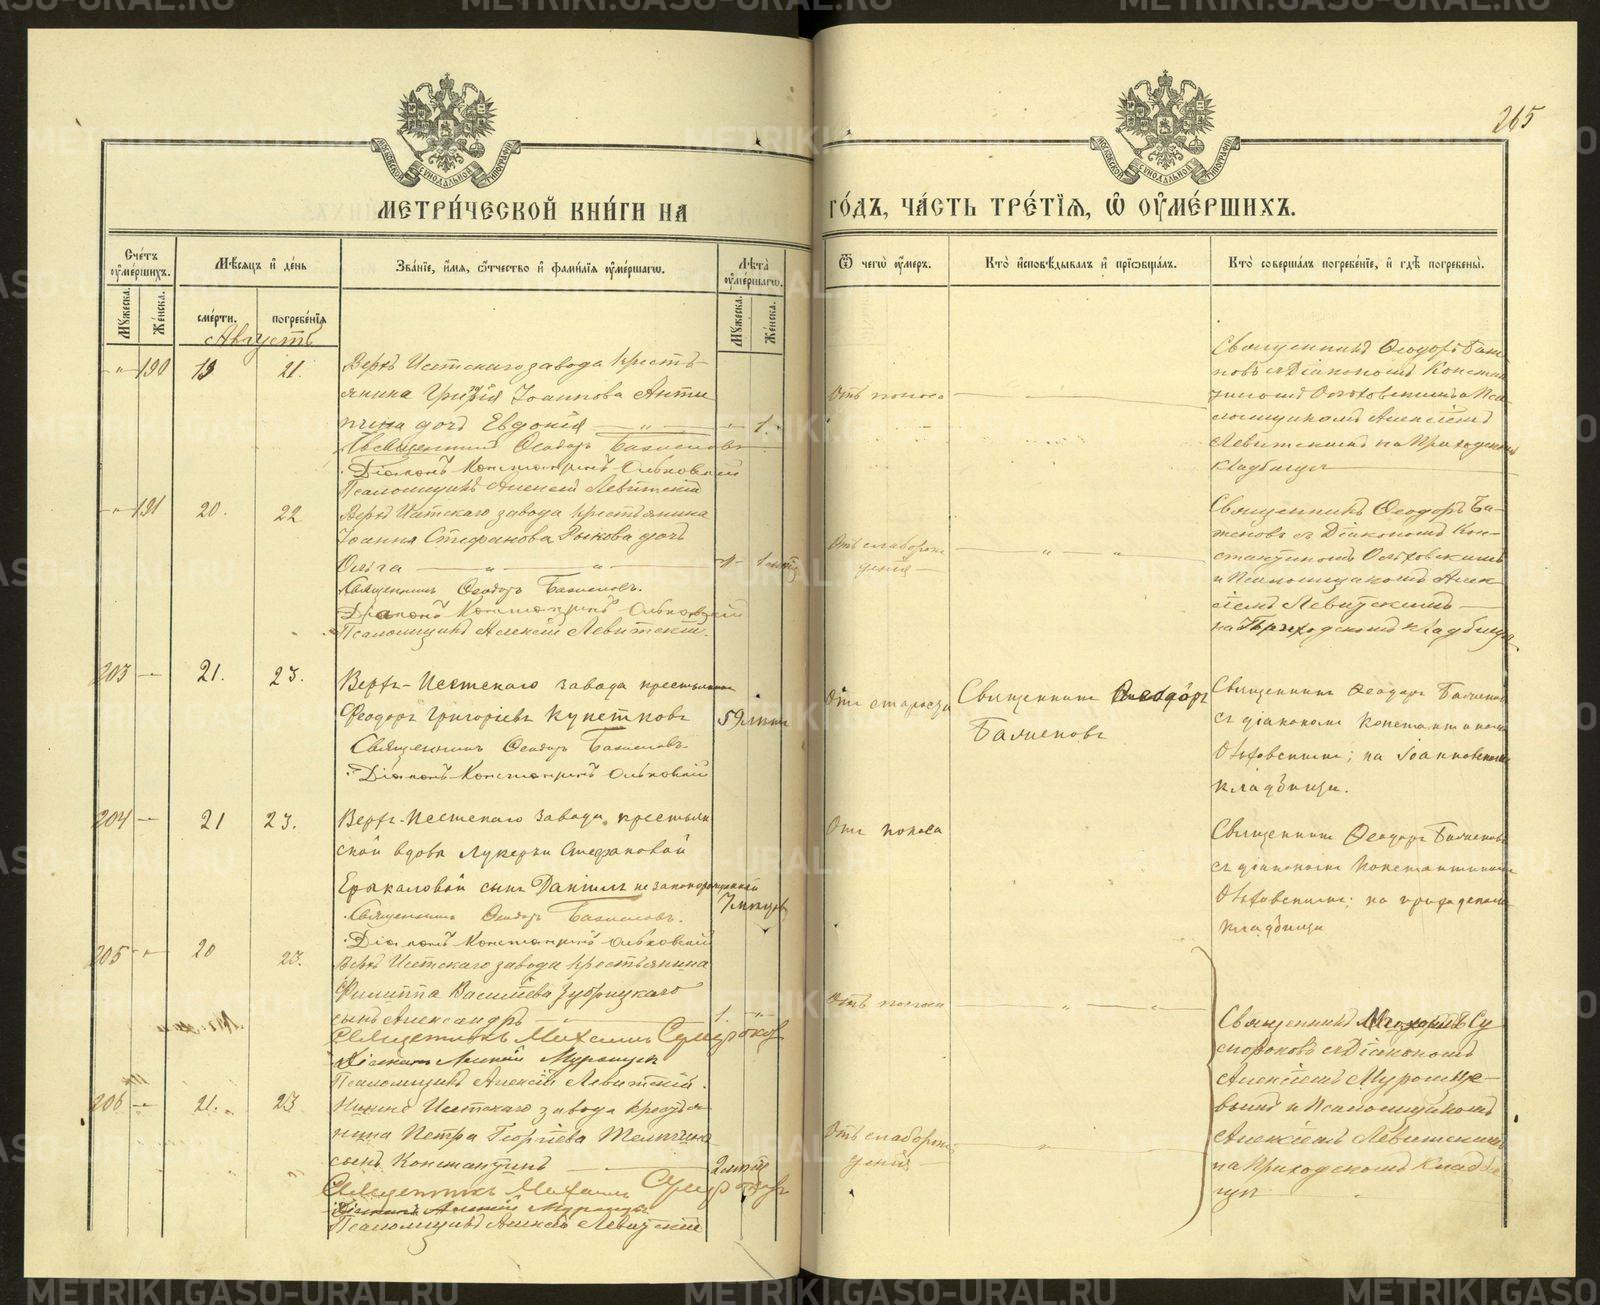 265
МЕТРИ́ЧЕСКОЙ КНИ́ГИ НА
ГО́ДЪ, ЧА́СТЬ ТРЕ́ТІѦ, Ѿ ОУ҆МЕ́РШИХЪ.
Сче́тъ оу҆ме́ршихъ.
Мꙋ́жеска.
Же́нска.
Мѣ́сѧцъ и҆ де́нь
сме́рти.
погребе́нїѧ
Зва́нїе, и҆́мѧ, ѻ҆́тчество и҆ фами́лїѧ оу҆ме́ршагѡ.
Лѣ́та оу҆ме́ршагѡ.
Мꙋ́жеска.
Же́нска.
Ѿ чегѡ̀ оу҆́меръ.
Кто̀ и҆сповѣ́дывалъ и҆ прїѡбща́лъ.
Кто̀ соверша́лъ погребе́нїе, и҆ гдѣ̀ погребены̀.
Августъ
190 19 21.
Верхъ Исетскаго завода Крестъ-
янина Григорія Іоаннова Анти
пина дочь Евдокія
1.
Священникъ Ѳеодоръ Баженовъ
Діаконъ Константинъ Ольховскій
Псаломщикъ Алексій Левитскій
Отъ поноса
Священникъ Ѳеодоръ Баже
новъ съ Діакономъ Констан
тиномъ Ольховскимъ и Пса
ломщикомъ Алексіемъ
Левитскимъ на Приходскомъ
кладбищѣ
191 20. 22
Верхъ Исетскаго завода крестьянина
Іоанна Стефанова Рыкова дочь
Ольга
Священникъ Ѳеодоръ Баженовъ.
Діаконъ Константинъ Ольховскій
Псаломщикъ Алексій Левитскій.
Отъ слаборож
денія
Священникъ Ѳеодоръ Ба-
женовъ съ Діакономъ Кон-
стантиномъ Ольховскимъ
и Псаломщикомъ Алек
сіемъ Левитскимъ
на Приходскомъ кладбищѣ
203 21. 23.
Верхъ-Исетскаго завода крестьянинъ
Ѳеодоръ Григоріевъ Кунстковъ
59 лѣтъ
Священникъ Ѳеодоръ Баженовъ
Діаконъ Константинъ Ольховскій
Отъ старости
Священникъ Ѳеодоръ
Баженовъ
Священникъ Ѳеодоръ Баженовъ
съ діакономъ Константиномъ
Ольховскимъ; на Іоанновскомъ
кладбищѣ.
204 21 23.
Верхъ-Исетскаго завода, крестьян
ской вдовы Лукерьи Стефановой
Ермаловой сынъ Даніилъ незаконорожденный
7 мѣсяцевъ
Священникъ Ѳеодоръ Баженовъ.
Діаконъ Константинъ Ольховскій
Отъ поноса
Священникъ Ѳеодоръ Баженовъ
съ діакономъ Константиномъ
Ольховскимъ; на приходскомъ
кладбищѣ
205 20 23.
Верхъ Исетскаго завода крестьянина
Филиппа Васильева Зубрицкаго
сынъ Александръ
1.
Священникъ Михаилъ Сумароковъ
Діаконъ Алексій Муромцевъ
Псаломщикъ Алексій Левитскій.
Отъ поноса
206 21. 23
Нижне Исетскаго завода Крестья-
нина Петра Георгіева Телегина
сынъ Константинъ
2 мѣсяц
Священникъ Михаилъ Сумароковъ
Діаконъ Алексій Муромцевъ
Псаломщикъ Алексій Левитскій
Отъ слаборож
денія
Священникъ Михаилъ Су
мароковъ съ Діакономъ
Алексіемъ Муромце-
вымъ и Псаломщикомъ
Алексіемъ Левитскимъ
на Приходскомъ Кладби
щѣ
METRIKI.GASO-URAL.RU